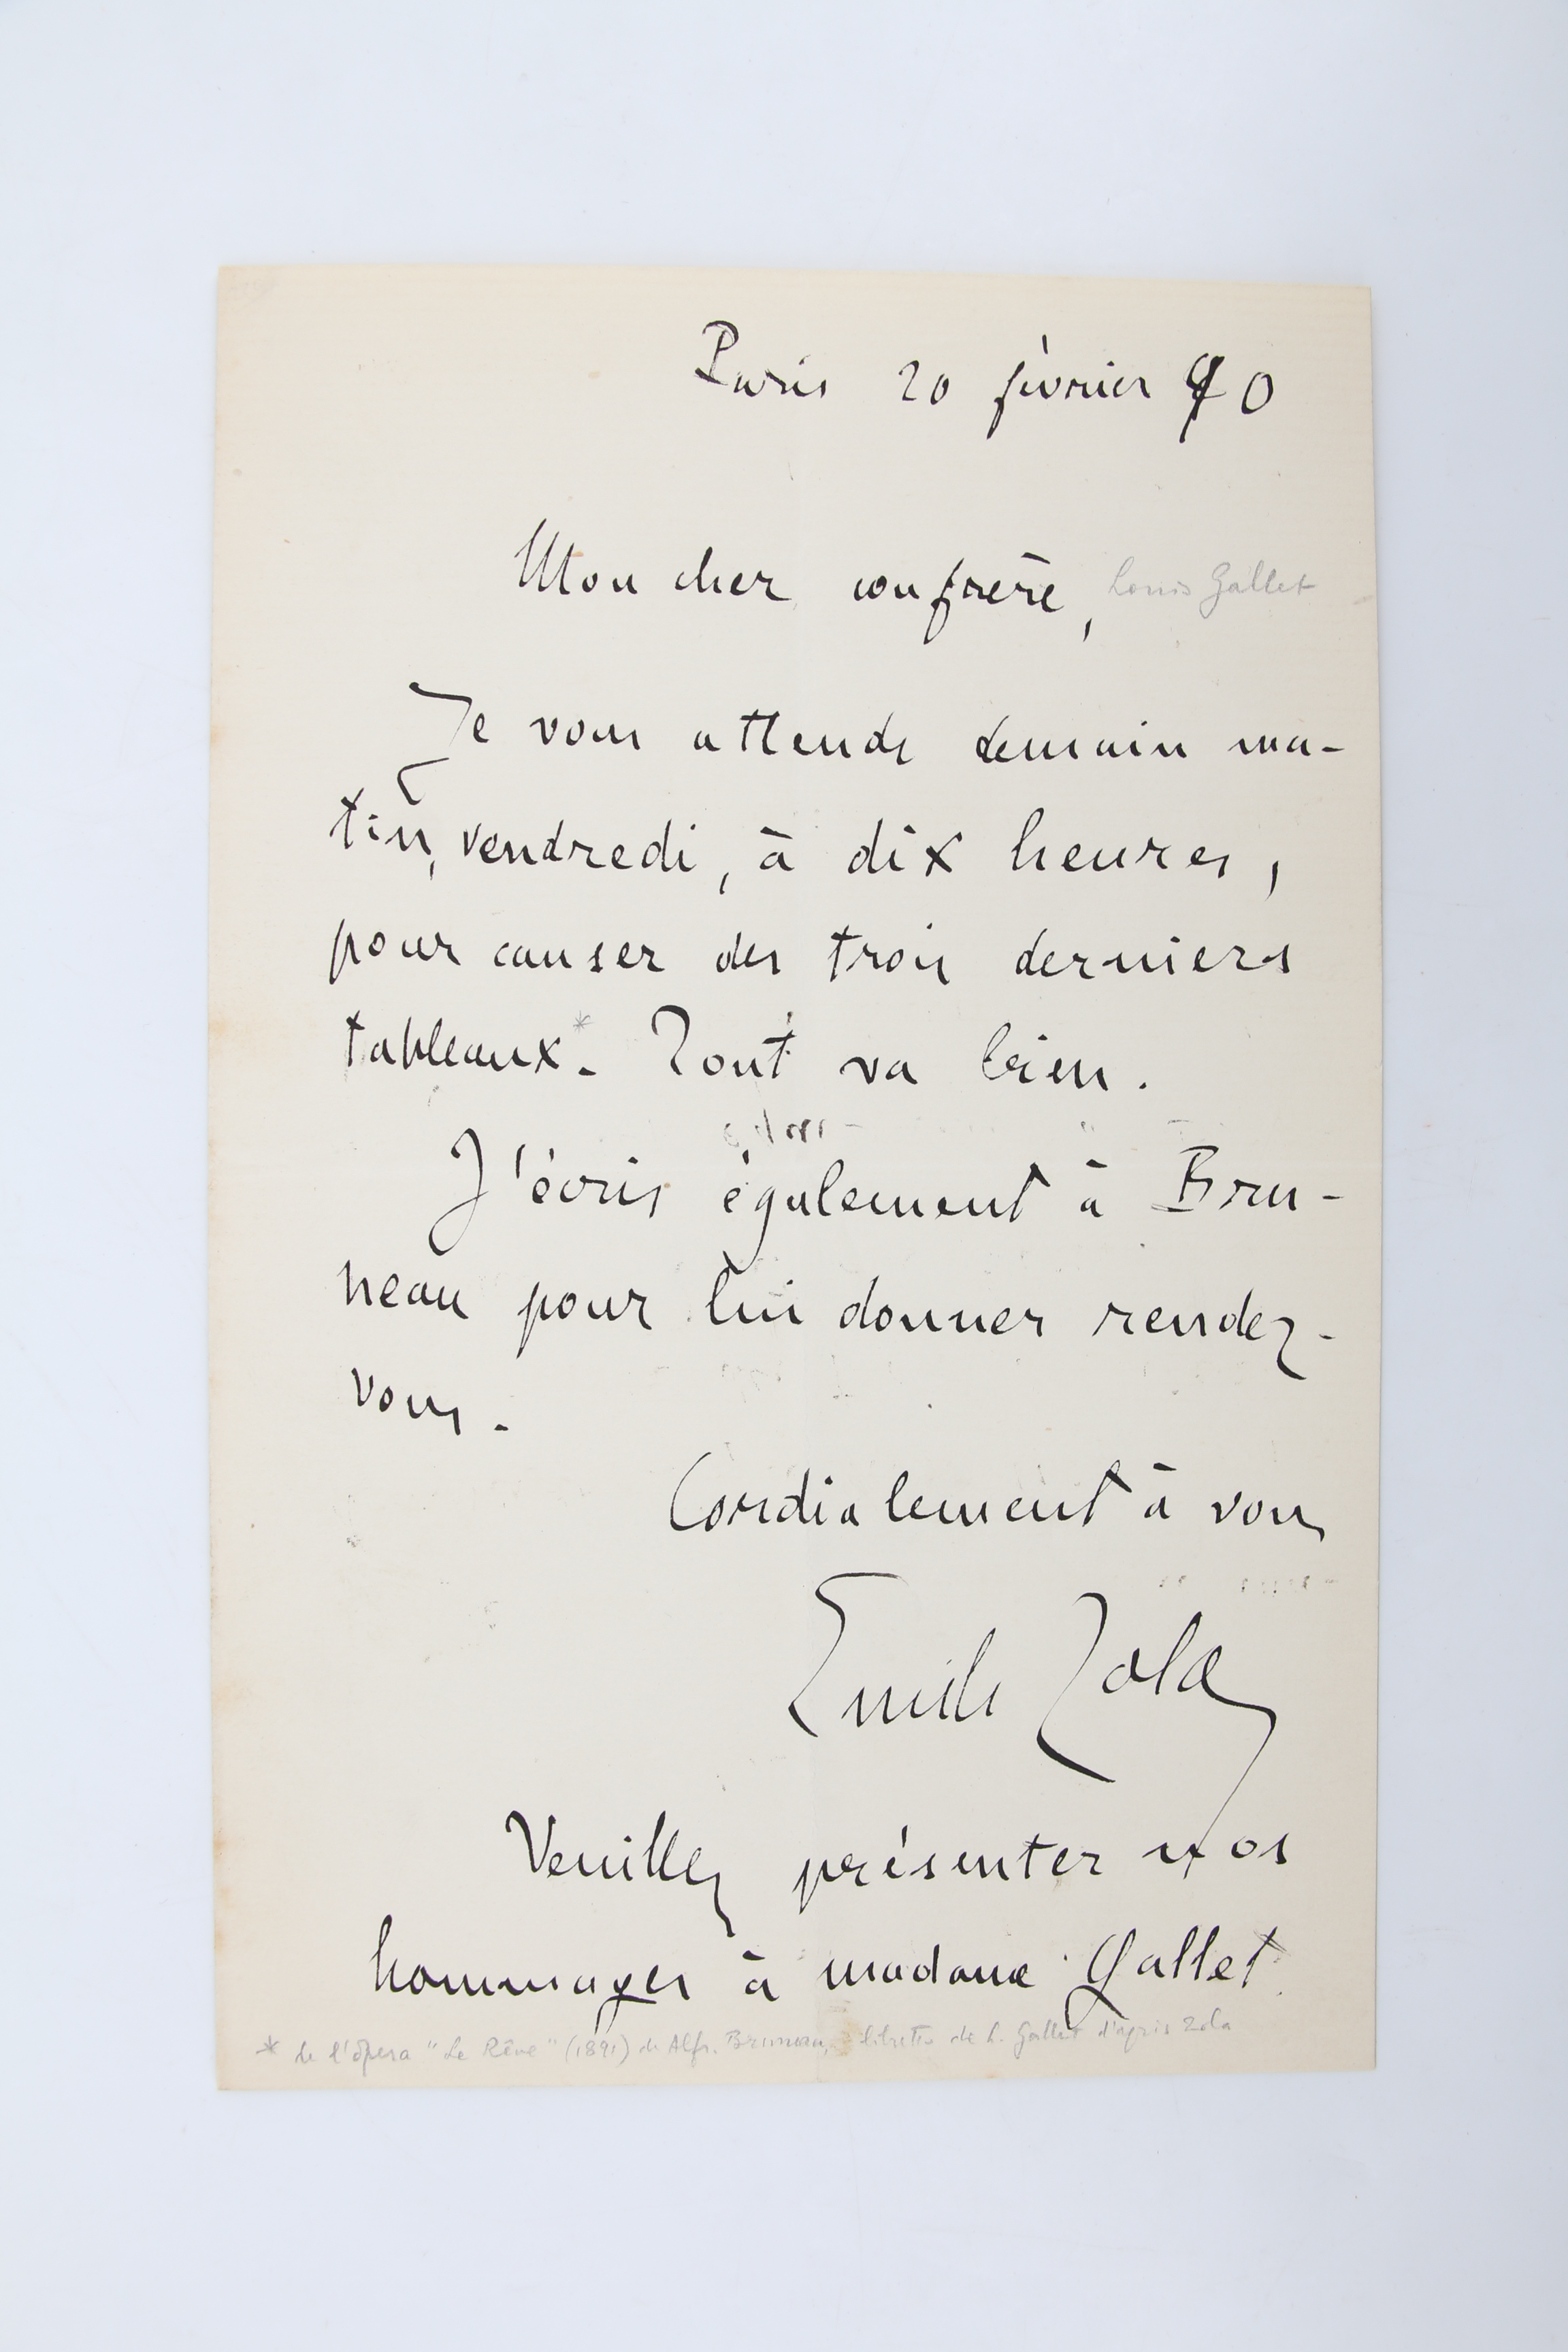 Paris 20 février 90
Mon cher confrère, Louis Gallet
Je vous attends demain ma-
tin, vendredi, à dix heures,
pour causer des trois derniers
tableaux*. Tout va bien.
J'écris également à Bru-
neau pour lui donner rendez-
vous.
Cordialement à vous
Emile Zola
Veuillez présenter nos
hommages à madame Gallet.
* de l'opéra "Le Rêve" (1891) de Alfr. Bruneau, libretto de L. Gallet d'après Zola